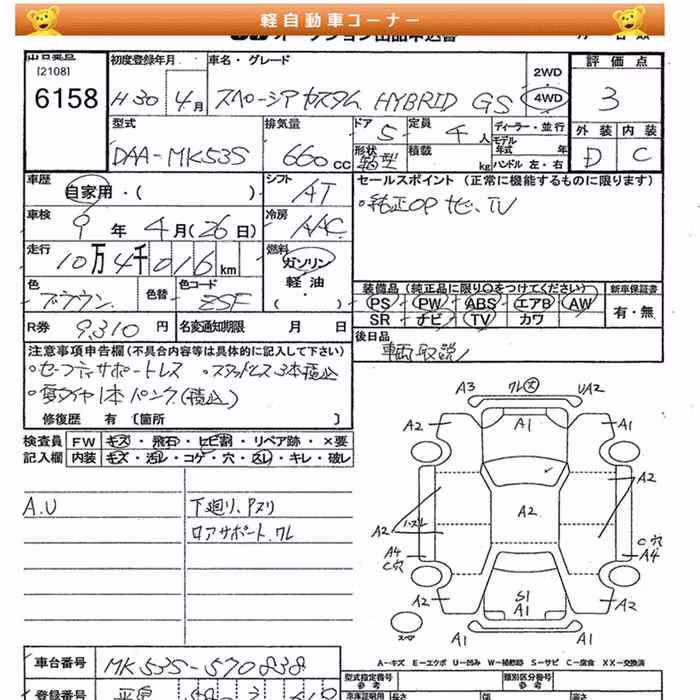 軽自動車コーナー
[2108]
6158
初度登録年月
H30 4月
車名・グレード
スペーシアカスタム HYBRID GS
2WD
4WD
評価点
3
外装 内装
D C
型式
DAA-MK53S
排気量
660 CC
ドア 5
定員 4 人
形状 箱型
積載 kg
ディーラー・並行
モデル年式 年
ハンドル 左・右
車歴
自家用・( )
シフト
AT
セールスポイント (正常に機能するものに限ります)
・純正OP ナビ、TV
車検
9年 4月(26日)
冷房
AAC
走行
10万4千016km
燃料
ガソリン
軽油
( )
色
ブラウン
色替
色コード
ZSF
装備品 (純正品に限り○をつけてください)
新車保証書
PS PW ABS エアB AW
SR ナビ TV カワ
有・無
R券 9,310円
名変通知期限 月 日
後日品
車両取説
注意事項申告欄(不具合内容等は具体的に記入して下さい)
・セーフティサポートレス ・スタッドレス3本積込
・夏タイヤ1本パンク(積込)
修復歴 有 〔箇所 〕
検査員 FW キズ・飛石・ヒビ割・リペア跡・×要
記入欄 内装 キズ・汚レ・コゲ・穴・スレ・キレ・破レ
A.U
下廻り、Pスリ
ロアサポート、ワレ
A3 ワレ大 UA2
A2 A1 A1
A2
A2
A2 ハズレ
A4 C穴
C穴 A4
S1
A1
A2 A2
スペア
A1 A1
A-キズ E-エクボ U-凹み W-補修跡 S-サビ C-腐食 XX-交換済
車台番号
MK53S-570838
型式指定番号
類別区分番号
参考
登録番号
長さ 幅 高さ